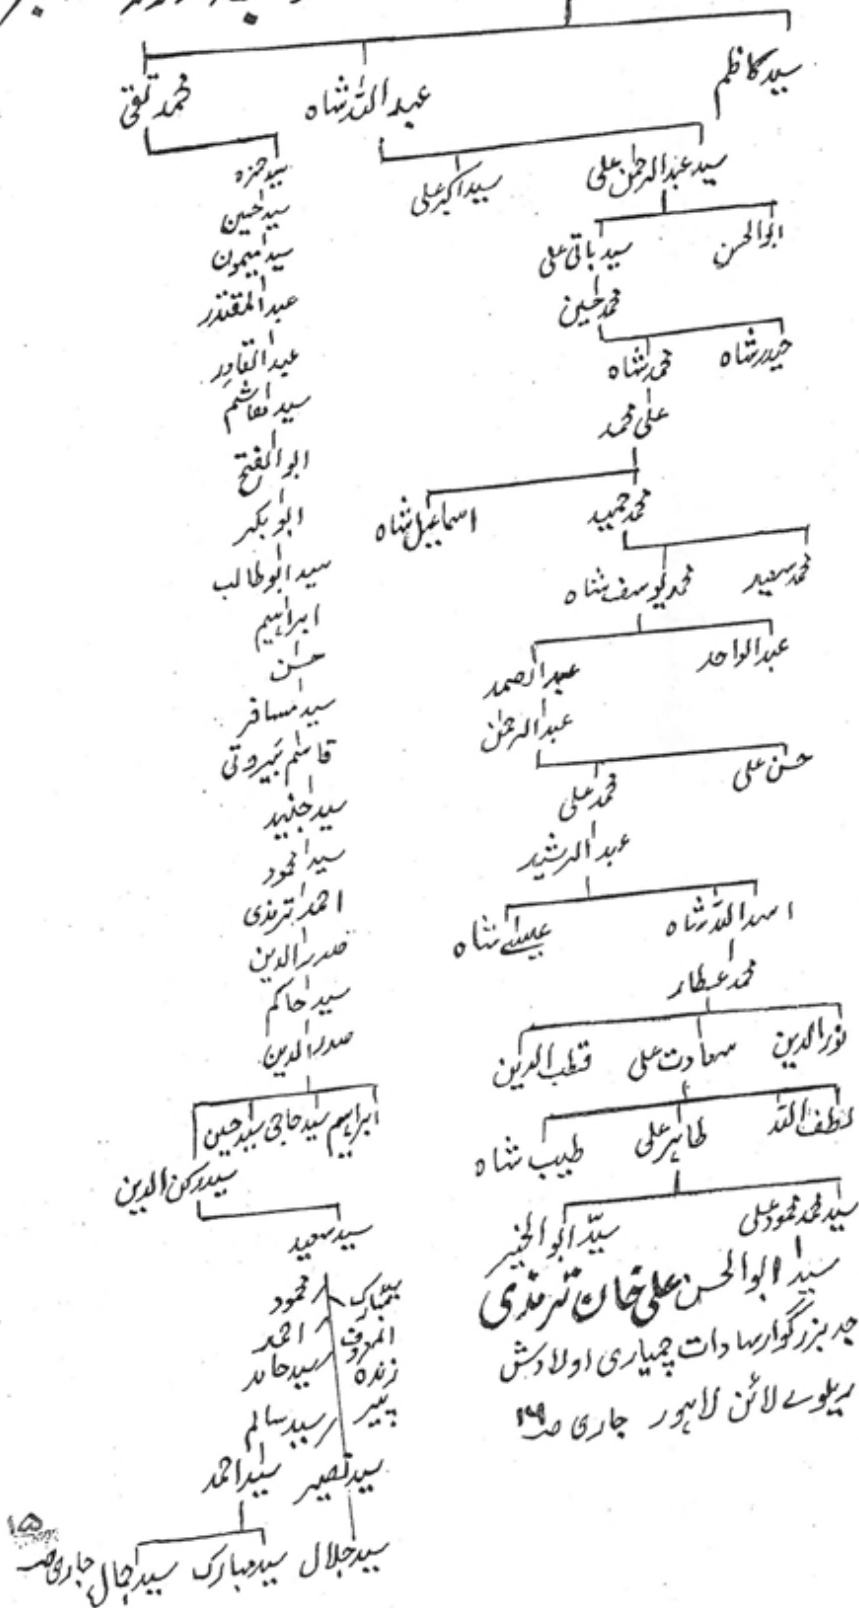 سید کاظم عبداللہ شاہ محمد تقی
سید عبدالرحمٰن علی سید اکبر علی
ابوالحسن سید باقی علی
محمد حسین
حیدر شاہ محمد شاہ
علی محمد
محمد حمید اسماعیل شاہ
محمد سعید محمد یوسف شاہ
عبدالواحد عبدالصمد
عبدالرحمٰن
حسن علی محمد علی
عبدالرشید
اسد اللہ شاہ عیسیٰ شاہ
محمد عطار
نورالدین سعادت علی قطب الدین
لطف اللہ طاہر علی طیب شاہ
سید محمد محمود علی سیّد ابوالخیر
سید ابوالحسن علی خان ترمذی
جد بزرگوار سادات چمیاری اولادش
ریلوے لائن لاہور جاری صـ
سید حمزہ
سید حسین
سید میمون
عبدالمقتدر
عبدالقادر
سید ہاشم
ابوالفتح
ابوبکر
سید ابوطالب
ابراہیم
حسن
سید مسافر
قاسم بیروتی
سید جنید
سید محمود
احمد ترمذی
صدرالدین
سید حاکم
صدرالدین
ابراہیم سید حاجی سید حسین
سید رکن الدین
سید سعید
محمود
المعروف احمد
زندہ سید حامد
پیر سید سالم
سید نصیر سید احمد
سید جلال سید مبارک سید جمال جاری صـ
۱۵